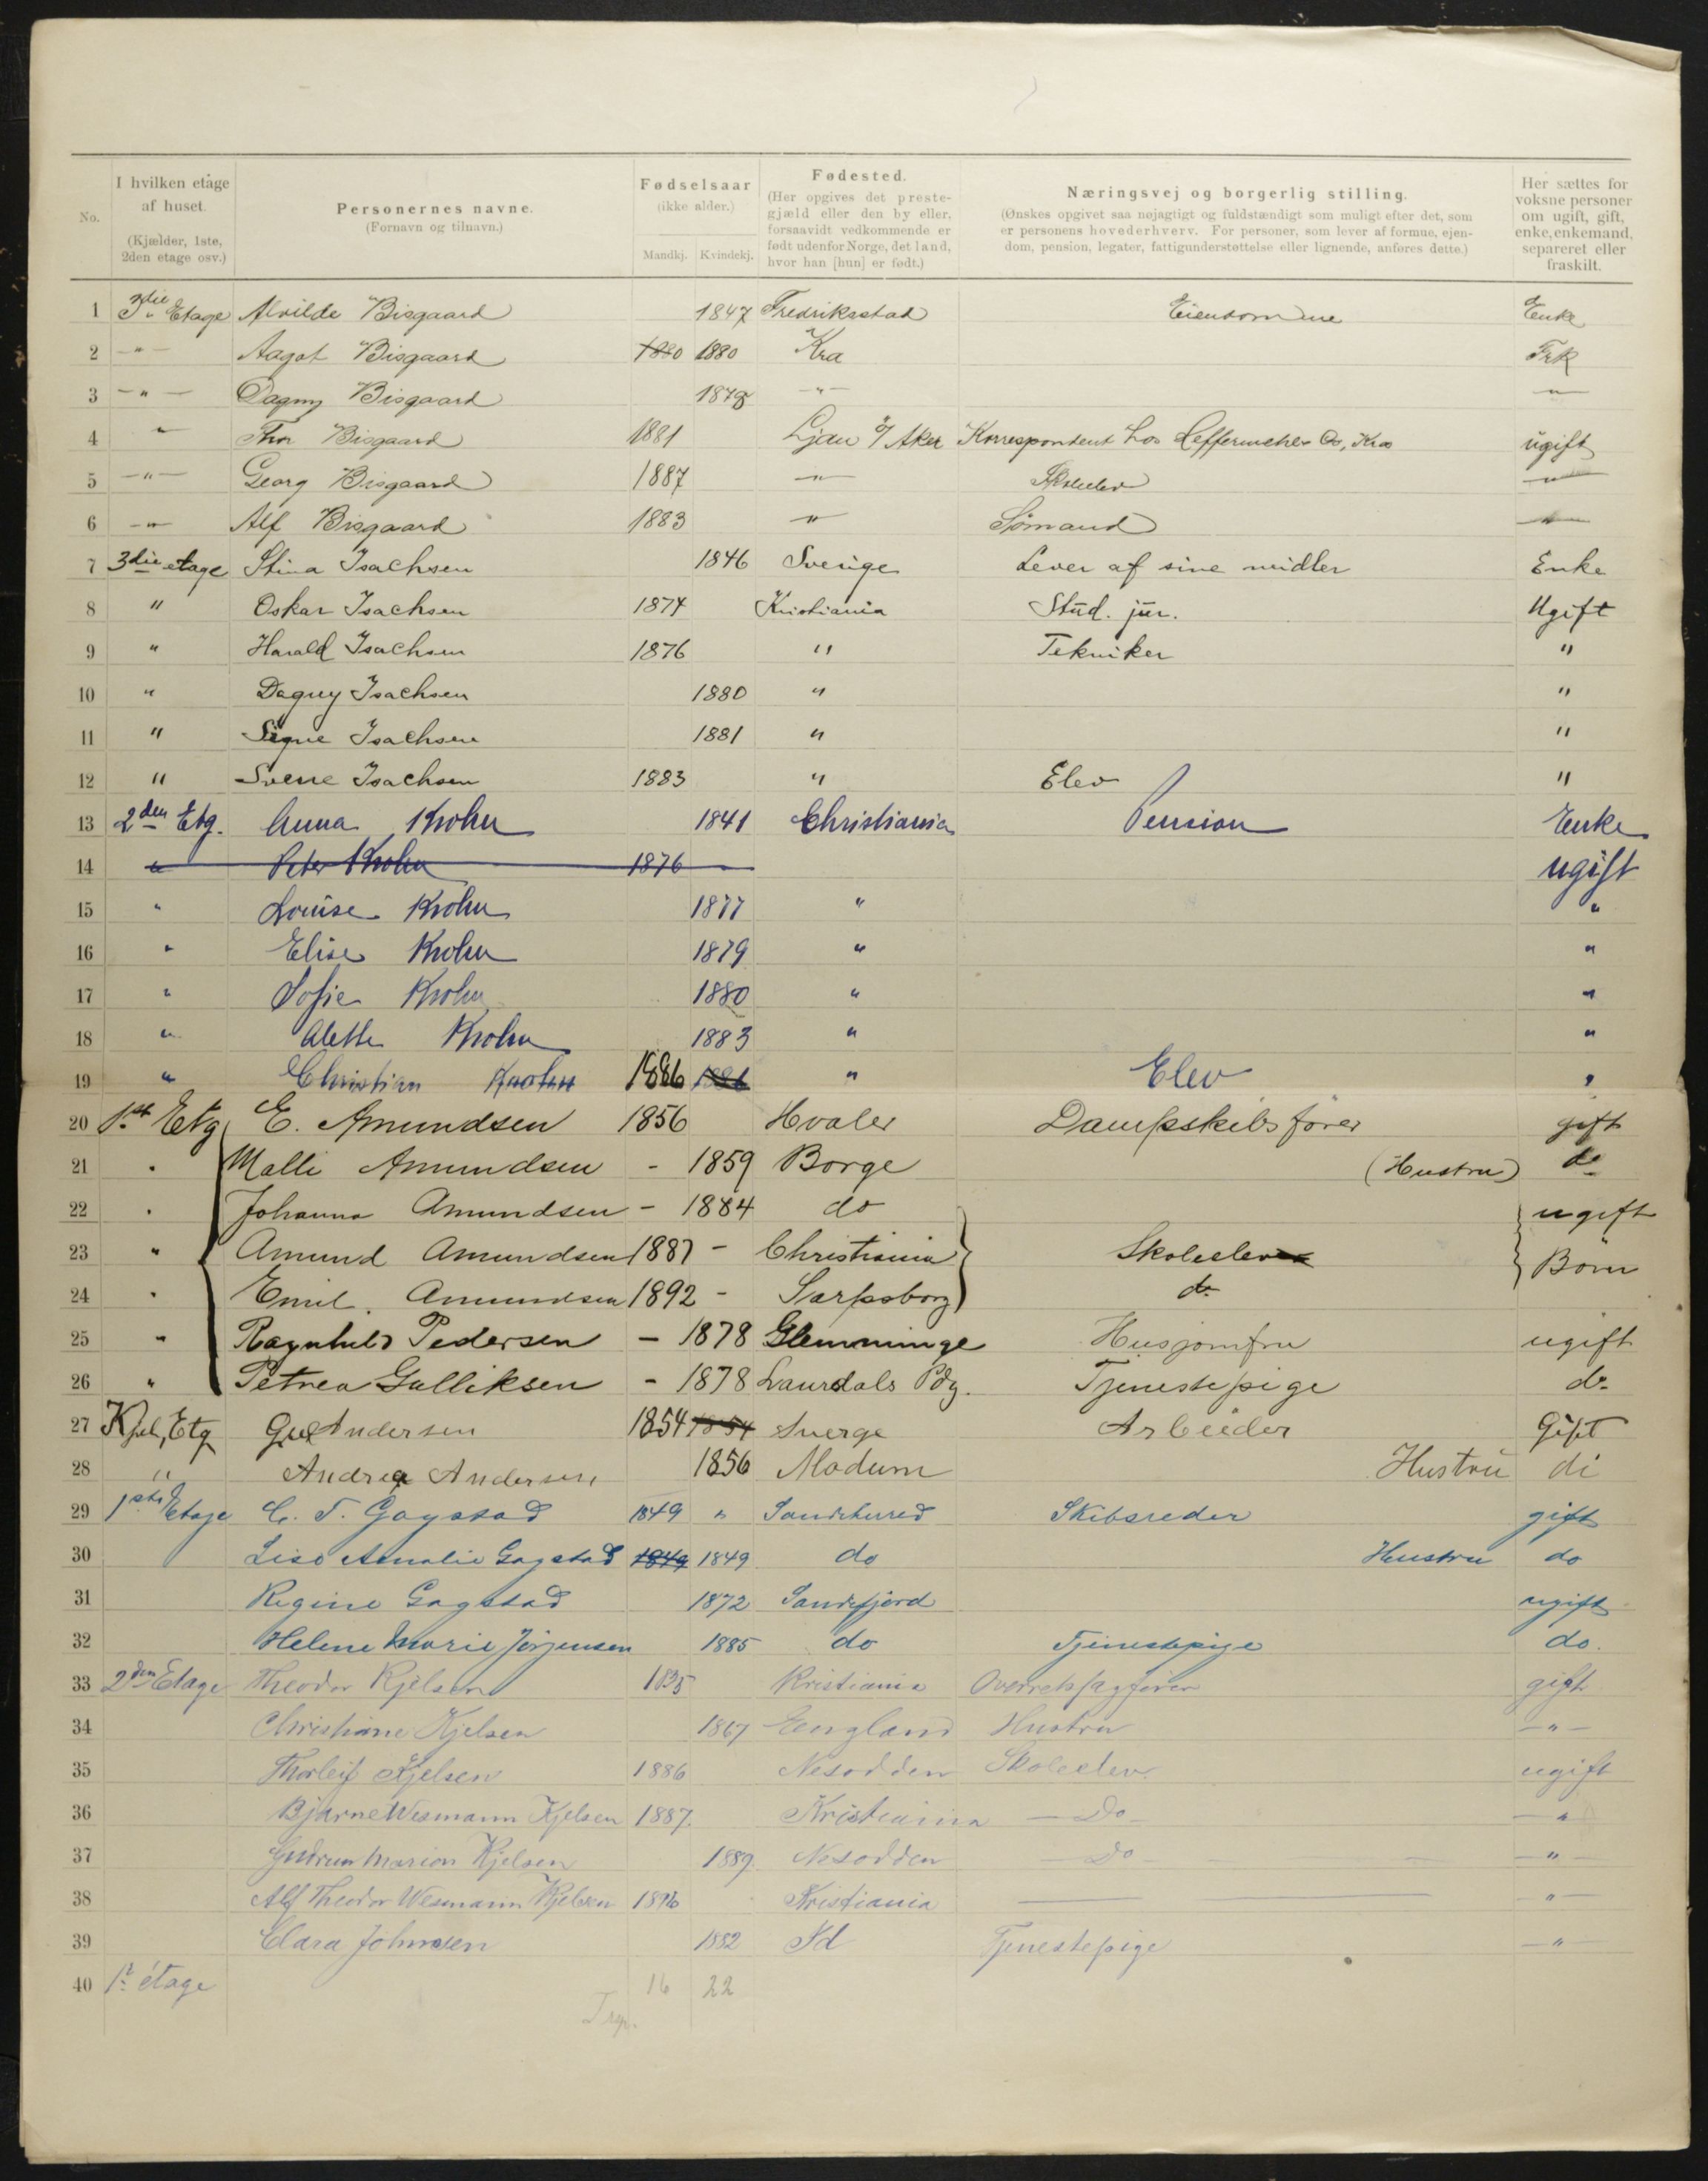 No.
I hvilken etage af huset. (Kjælder, 1ste, 2den etage osv.)
Personernes navne. (Fornavn og tilnavn.)
Fødselsaar (ikke alder.) Mandkj. Kvindekj.
Fødested. (Her opgives det prestegjæld eller den by eller, forsaavidt vedkommende er født udenfor Norge, det land, hvor han [hun] er født.)
Næringsvej og borgerlig stilling. (Ønskes opgivet saa nøjagtigt og fuldstændigt som muligt efter det, som er personens hovederhverv. For personer, som lever af formue, ejendom, pension, legater, fattigunderstøttelse eller lignende, anføres dette.)
Her sættes for voksne personer om ugift, gift, enke, enkemand, separeret eller fraskilt.
1 3die Etage Alvilde Bisgaard 1847 Fredriksstad Enke
2 -"- Aagot Bisgaard 1880 1880 Kra Frk
3 -"- Dagny Bisgaard -"- -"-
4 " Thor Bisgaard 1881 Ljan i/ Aker Korrespondent hos & Co, Kra ugift
5 -"- Georg Bisgaard 1887 -"- Skoleelev -"-
6 -"- Alf Bisgaard 1883 -"- Sømand -"-
7 3die etage Stina Isachsen 1846 Sverige Lever af sine midler Enke
8 " Oskar Isachsen 1874 Kristiania Stud. jur. Ugift
9 " Harald Isachsen 1876 " Tekniker "
10 " Dagny Isachsen 1880 " "
11 " Signe Isachsen 1881 " "
12 " Sverre Isachsen 1883 " Elev "
13 2den Etg. Anna Krohn 1841 Christiania Pension Enke
14 " Peter Krohn 1876 ugift
15 " Louise Krohn 1877 " "
16 " Elise Krohn 1879 " "
17 " Sofie Krohn 1880 " "
18 " Alette Krohn 1883 " "
19 " Christian Krohn 1886 1886 " Elev "
20 1st Etg E. Amundsen 1856 Hvaler Dampskibsfører gift
21 " Malli Amundsen - 1859 Borge (Hustru) do
22 " Johanna Amundsen - 1884 do ugift
23 " Amund Amundsen 1887 - Christiania Skoleelev Børn
24 " Emil. Amundsen 1892 - Sarpsborg do
25 " Ragnhild Pedersen - 1878 Glemminge Husjomfru ugift
26 " Petrea Gulliksen - 1878 Laurdals Pdg. Tjenestepige do
27 Kjel, Etg Andersen 1854 1854 Sverge Arbeider Gift
28 " Andrea Andersen 1856 Modum Hustru di
29 1ste Etage C. T. Gogstad 1849 " Sandeherred Skibsreder gift
30 Lise Amalie Gogstad 1849 1849 do Hustru do
31 Regine Gogstad 1872 Sandefjord ugift
32 Helene Marie Jörgensen 1885 do Tjenestepige do.
33 2den Etage Theodor Kjelsen 1835 Kristiania Overretssagfører gift
34 Christiane Kjelsen 1867 Eengland Hustru -"-
35 Thorleif Kjelsen 1886 Nesodden Skoleelev. ugift
36 Bjarne Wesmann Kjelsen 1887. Kristiania -Do- -"-
37 Gudrun Marion Kjelsen 1889. Nesodden -Do- -"-
38 Alf Theodor Wesmann Kjelsen Kristiania -"-
39 Clara Johnsen 1882 Id Tjenestepige -"-
40 1ste étage 16 22